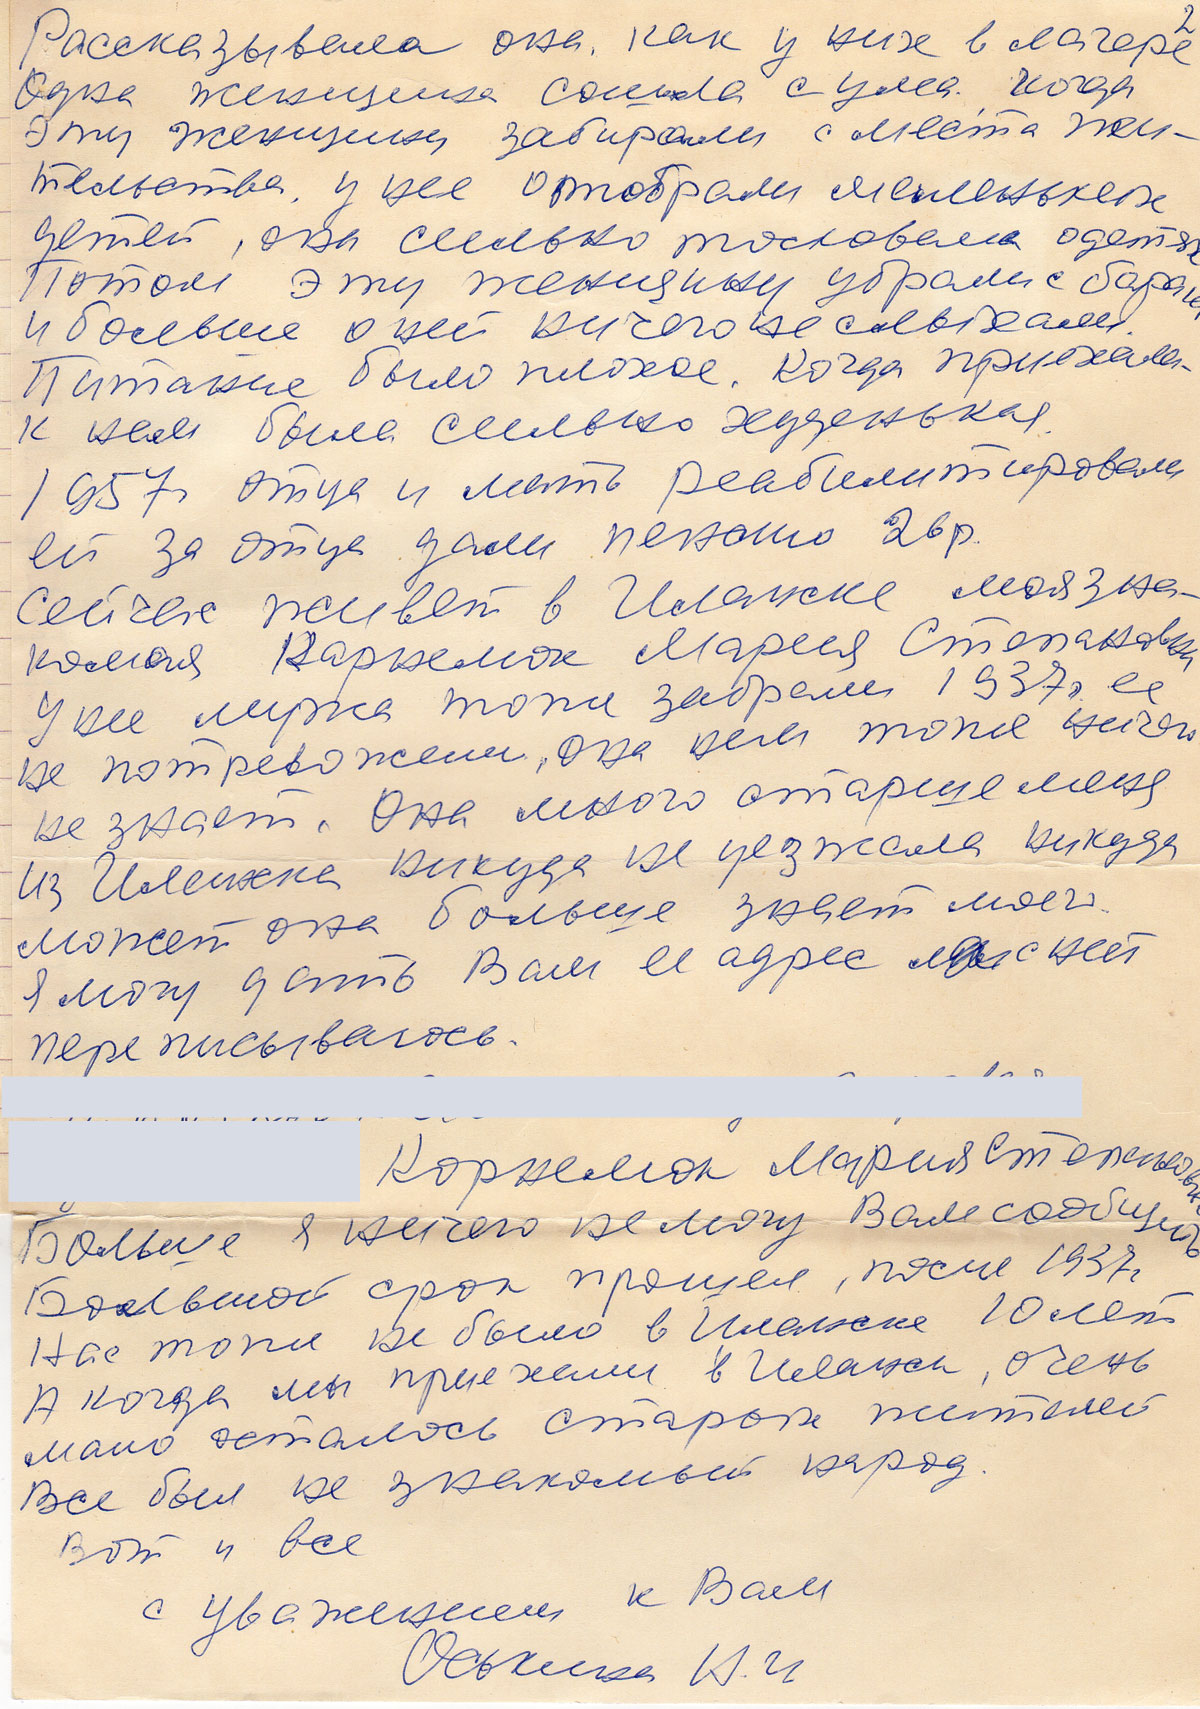 2
Рассказывала она. как у них в лагере
Одна женщина сошла с ума, когда
эту женщину забирали с места жи-
тельства, у нее отобрали маленьких
детей, она сильно тосковала о детях
Потом эту женщину убрали с барака
и больше о ней ничего не слыхали.
Питание было плохое. Когда приехала
к нам была сильно худенькая.
1957г отца и мать реабилитировали
ей за отца дали пенсию 2 вр.
Сейчас живет в Иланске моя зна-
комая Карнелюк Мария Степановна
У нее мужа тоже забрали 1937г, ее
не потревожили, она нам тоже ничего
не знает. Она много старше меня
из Иланска никуда не уезжала никуда
может она больше знает моего
Я могу дать Вам ее адрес мы с ней
переписываюсь.
Корнелюк Мария Степановна
Больше я ничего не могу Вам сообщить
Большой срок прошел, после 1937г
Нас тоже не было в Иланске 10 лет
А когда мы приехали в Иланск, очень
мало осталось старых жителей
Все был не знакомый народ.
Вот и все
с уважением к Вам
Оськина Н.И